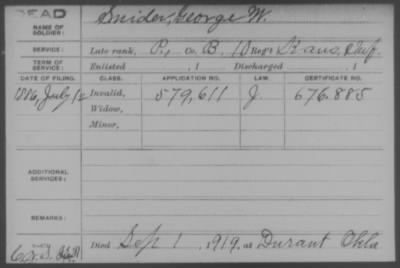 DEAD
NAME OF SOLDIER: Snider, George W.
SERVICE: Late rank, P., Co. B, 10 Reg't Kans. Inf.
TERM OF SERVICE: Enlisted , 1 Discharged , 1
DATE OF FILING. CLASS. APPLICATION NO. LAW. CERTIFICATE NO.
1886, July 12 Invalid, 579,611 J. 676.885
Widow,
Minor,
ADDITIONAL SERVICES:
REMARKS:
Died Sep 1, 1919, at Durant Okla